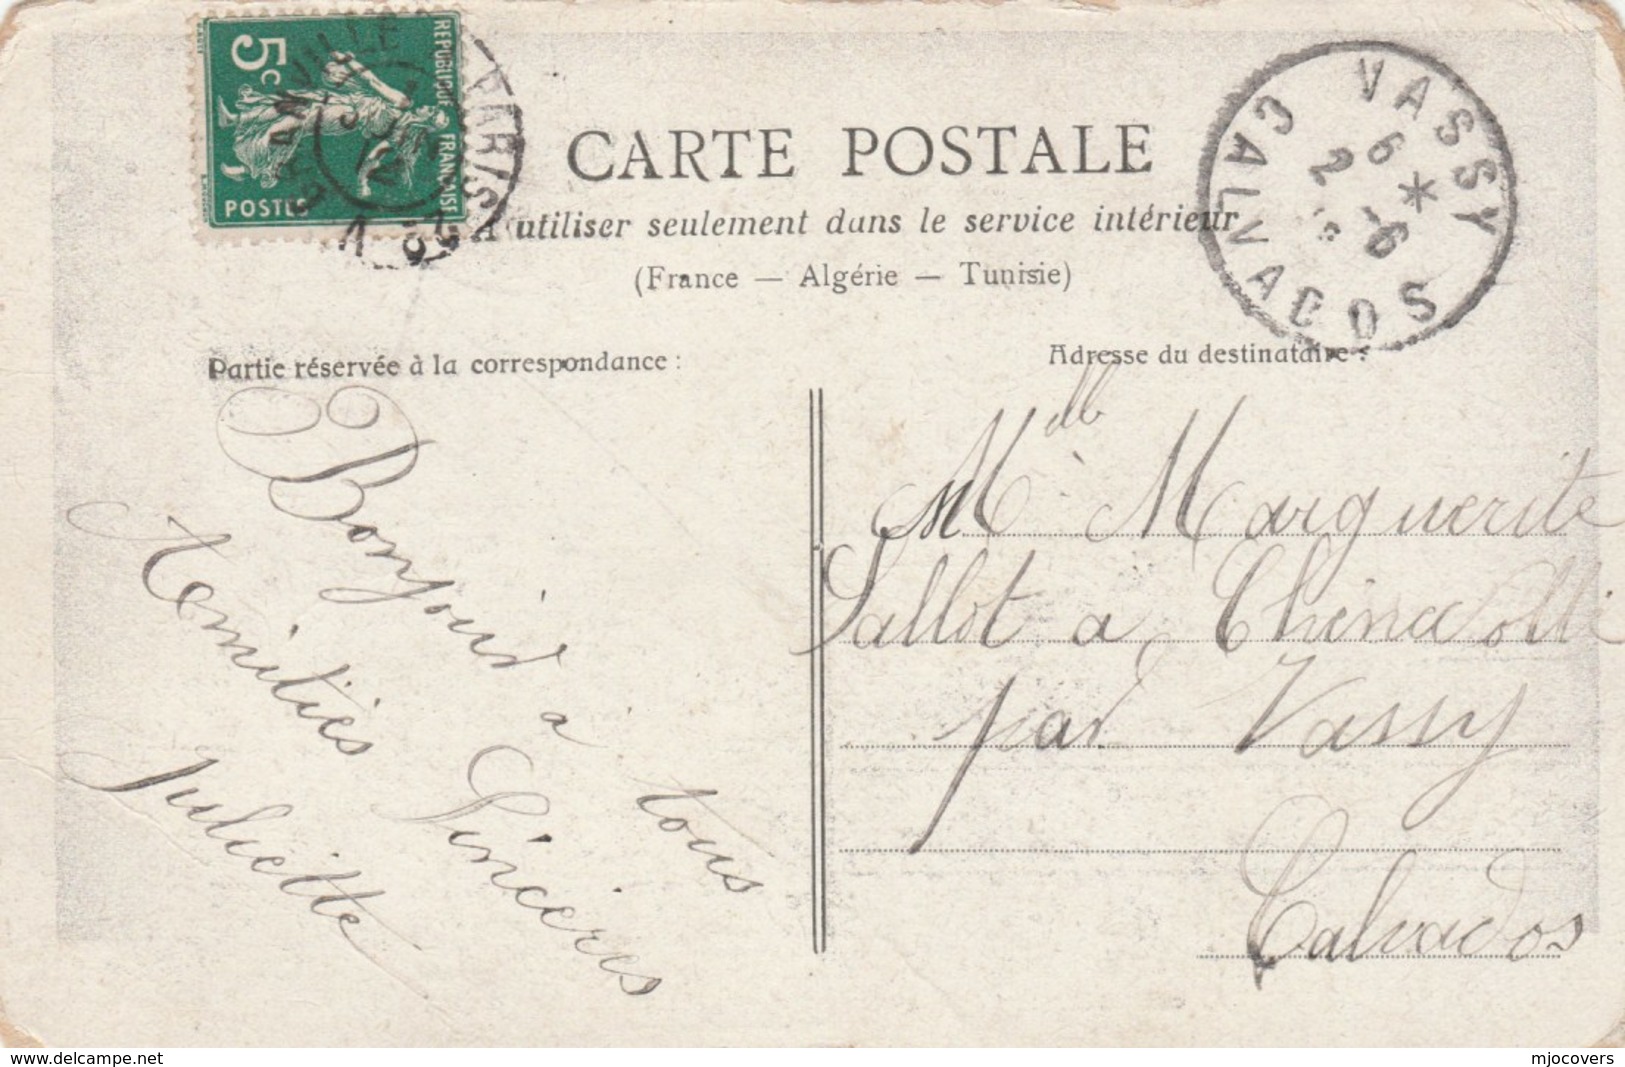 5c
REPUBLIQUE FRANÇAISE
POSTES
GRANVILLE
PARIS
VASSY
6 *
2 -6
CALVADOS
CARTE POSTALE
A utiliser seulement dans le service intérieur
(France — Algérie — Tunisie)
Partie réservée à la correspondance :
Adresse du destinataire :
Bonjour à tous
Amitiés Sincères
Juliette
Mlle Marguerite
Sallot à
par Vassy
Calvados
delcampe.net
mjocovers